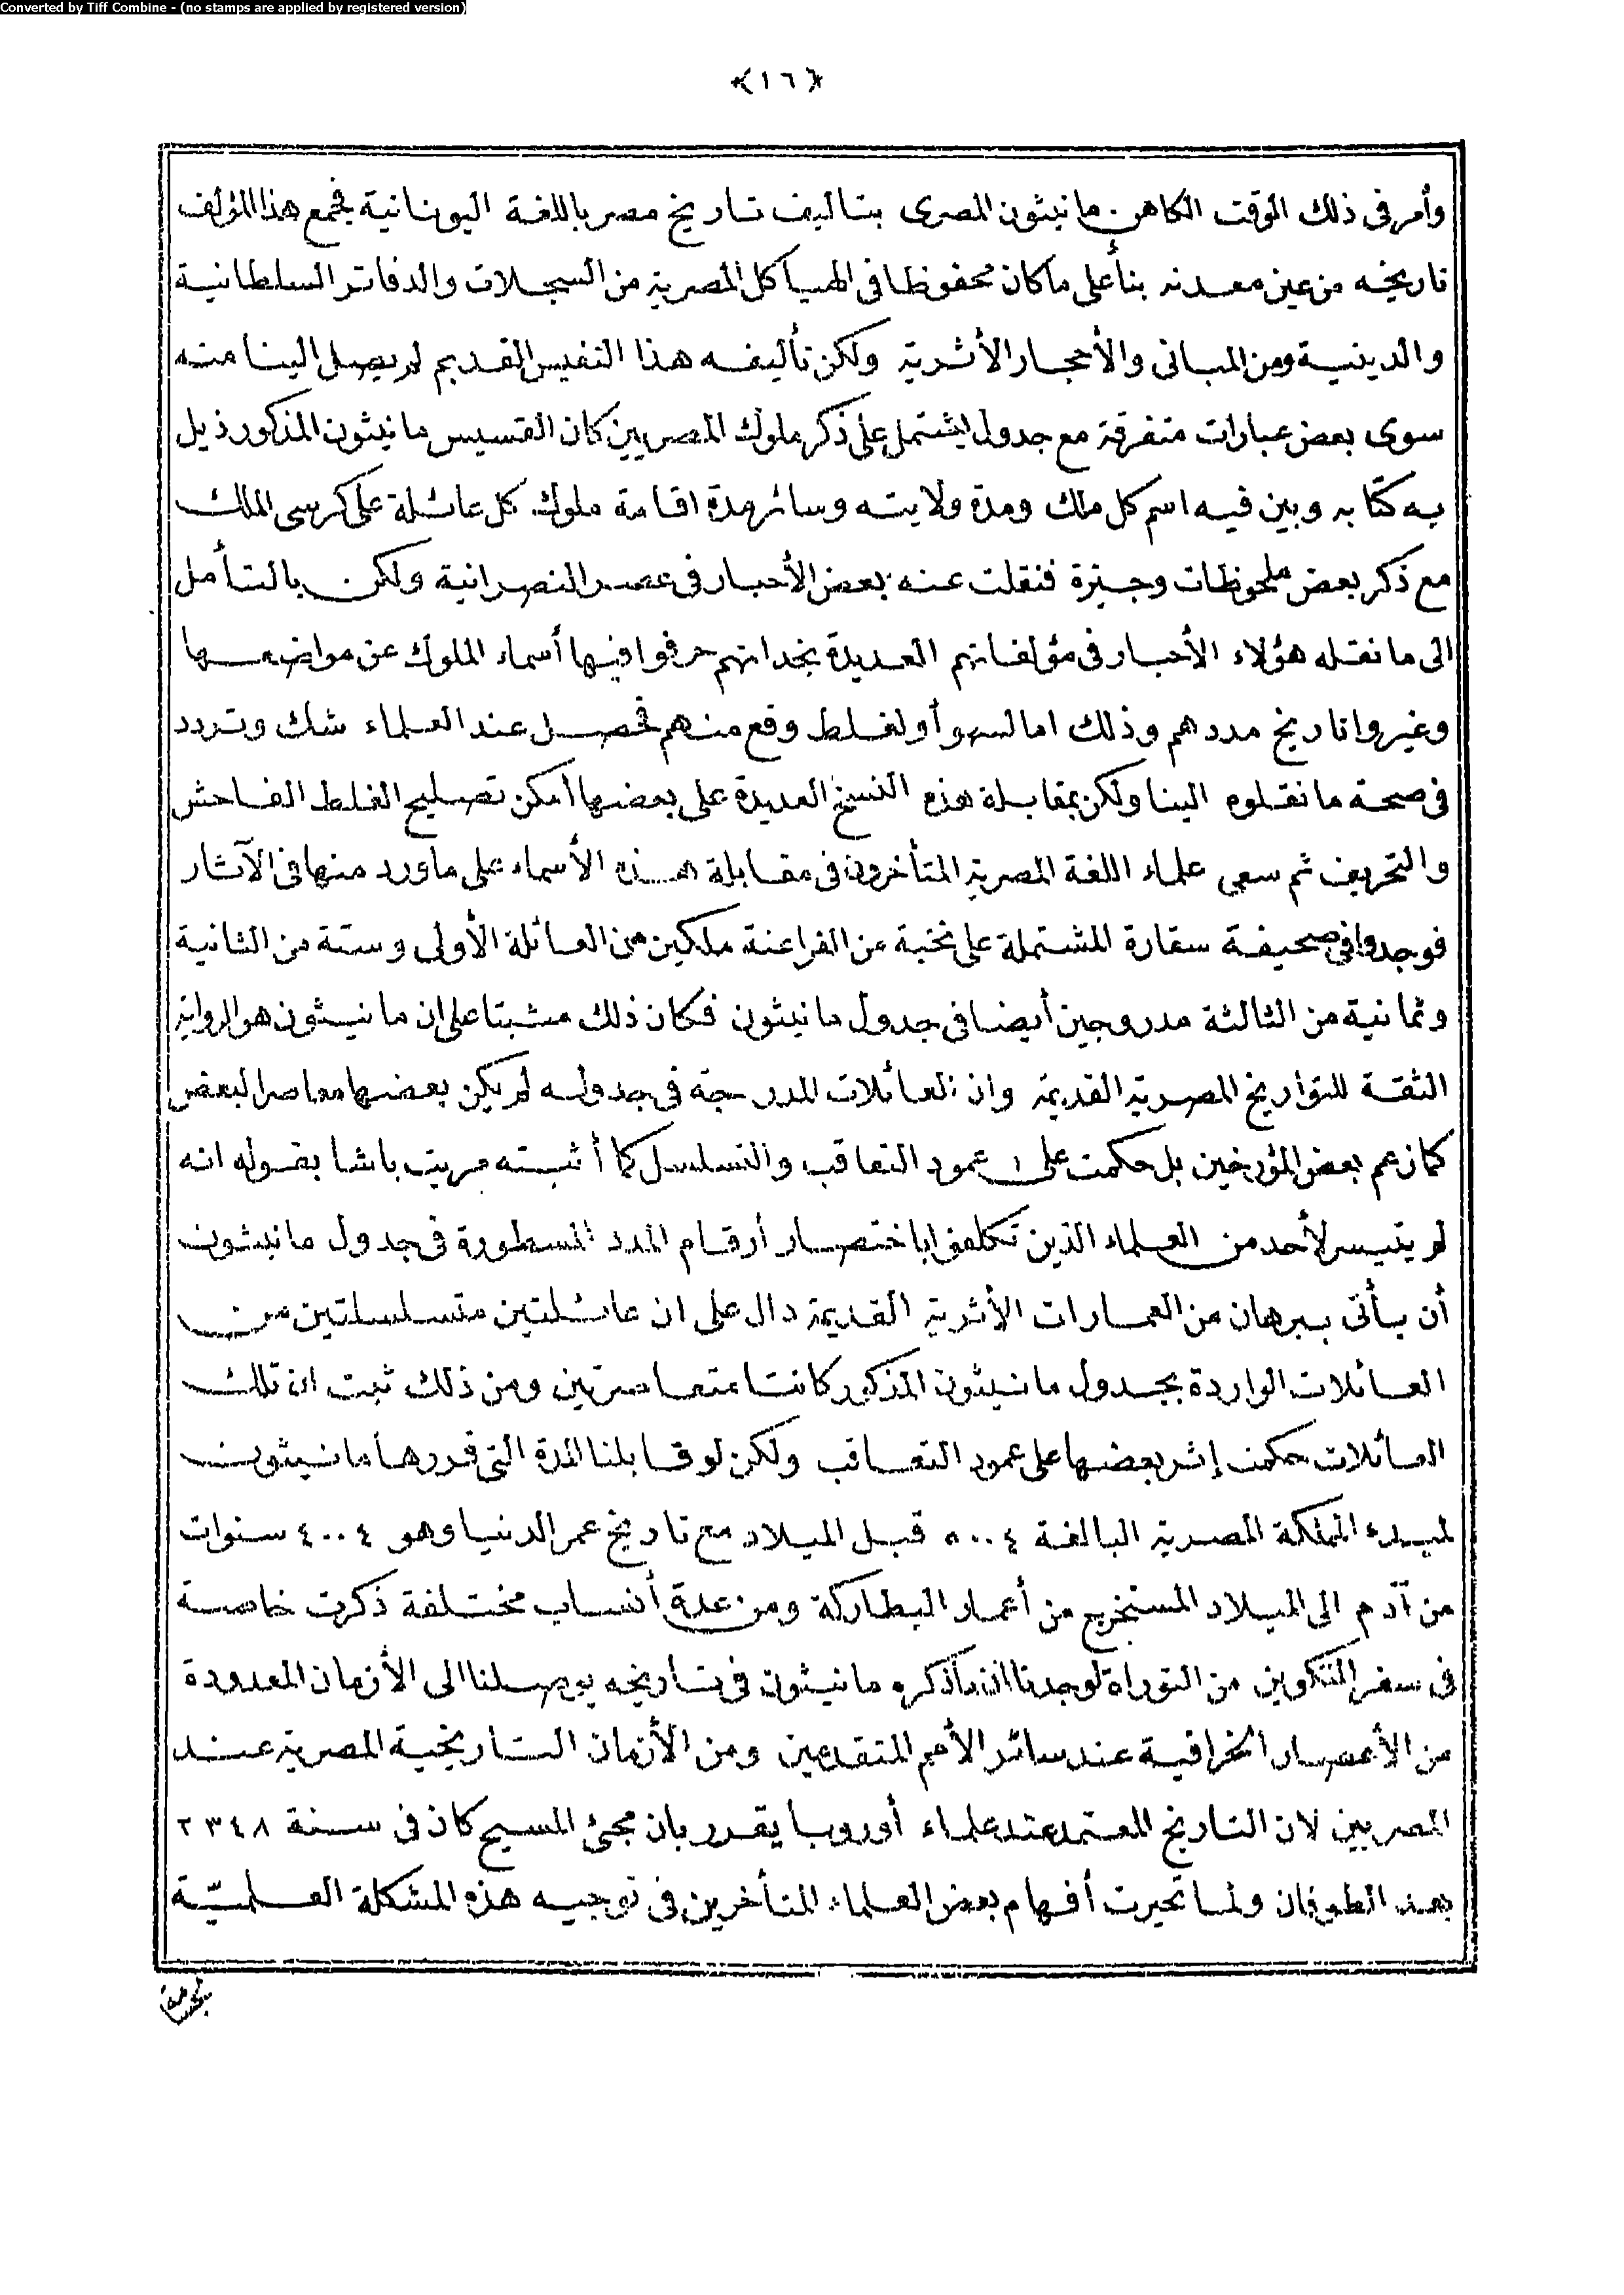 Converted by Tiff Combine - (no stamps are applied by registered version)
﴿١٦﴾
وأمر فى ذلك الوقت الكاهن مانيثون المصرى بتاليف تاريخ مصر باللغة اليونانية فجمع هذا المؤلف
تاريخه من عين معدنه بنأ على ما كان محفوظا فى الهياكل المصرية من السجلات والدفاتر السلطانية
والدينية ومن المبانى والأحجار الأثرية ولكن تأليفه هذا النفيس القديم لم يصل الينا منه
سوى بعض عبارات متفرقة مع جدول يشتمل على ذكر ملوك المصريين كان القسيس مانيثون المذكور ذيل
به كتابه وبين فيه اسم كل ملك ومدة ولايته وسائر مدة اقامة ملوك كل عائلة على كرسى الملك
مع ذكر بعض ملحوظات وجيزة فنقلت عنه بعض الأحبار فى عصر النصرانية ولكن بالتأمل
الى ما نقله هؤلاء الأحبار فى مؤلفاتهم العديدة نجد انهم حرفوا فيها أسماء الملوك عن مواضعها
وغيروا تاريخ مددهم وذلك اما لسهو أو لغلط وقع منهم فحصل عند العلماء شك وتردد
فى صحة ما نقلوه الينا ولكن بمقابلة هذه النسخ العديدة على بعضها أمكن تصليح الغلط الفاحش
والتحريف ثم سعى علماء اللغة المصرية المتأخرون فى مقابلة هذه الأسماء على ماورد منها فى الآثار
فوجدوا فى صحيفة سقارة المشتملة على نخبة من الفراعنة ملكين من العائلة الأولى وستة من الثانية
وثمانية من الثالثة مدروجين أيضا فى جدول مانيثون فكان ذلك مثبتا على ان مانيثون هو الرواية
الثقة للتواريخ المصرية القديمة وان العائلات المدرجة فى جدوله لم يكن بعضها معاصرا لبعض
كما زعم بعض المؤرخين بل حكمت على عمود التعاقب والتسلسل كما أثبته مريت باشا بقوله انه
لم يتيسر لأحد من العلماء الذين تكلفوا باختصار أرقام المدد المسطورة فى جدول مانيثون
أن يأتى ببرهان من العمارات الأثرية القديمة دال على ان عائلتين متسلسلتين من
العائلات الواردة بجدول مانيثون المذكور كانتا متعاصرتين ومن ذلك ثبت ان تلك
العائلات حكمت إثر بعضها على عمود التعاقب ولكن لو قابلنا المدة التى قدرها مانيثون
لمبدء المملكة المصرية البالغة ٥٠٠٤ قبل الميلاد مع تاريخ عمر الدنيا وهو ٤٠٠٤ سنوات
من آدم الى الميلاد المستخرج من أعمار البطاركة ومن عدة أنساب مختلفة ذكرت خاصة
فى سفر التكوين من التوراة لوجدنا ان ما ذكره مانيثون فى تاريخه يوصلنا الى الأزمان المعدودة
من الأعصار الخرافية عند سائر الأمم المتقدمين ومن الأزمان التاريخية المصرية عند
المصريين لان التاريخ المعتمد عند علماء أوروبا يقدر بان مجئ المسيح كان فى سنة ٢٣٤٨
بعد الطوفان ولما تحيرت أفهام بعض العلماء المتأخرين فى توجيه هذه المشكلة العلميّة